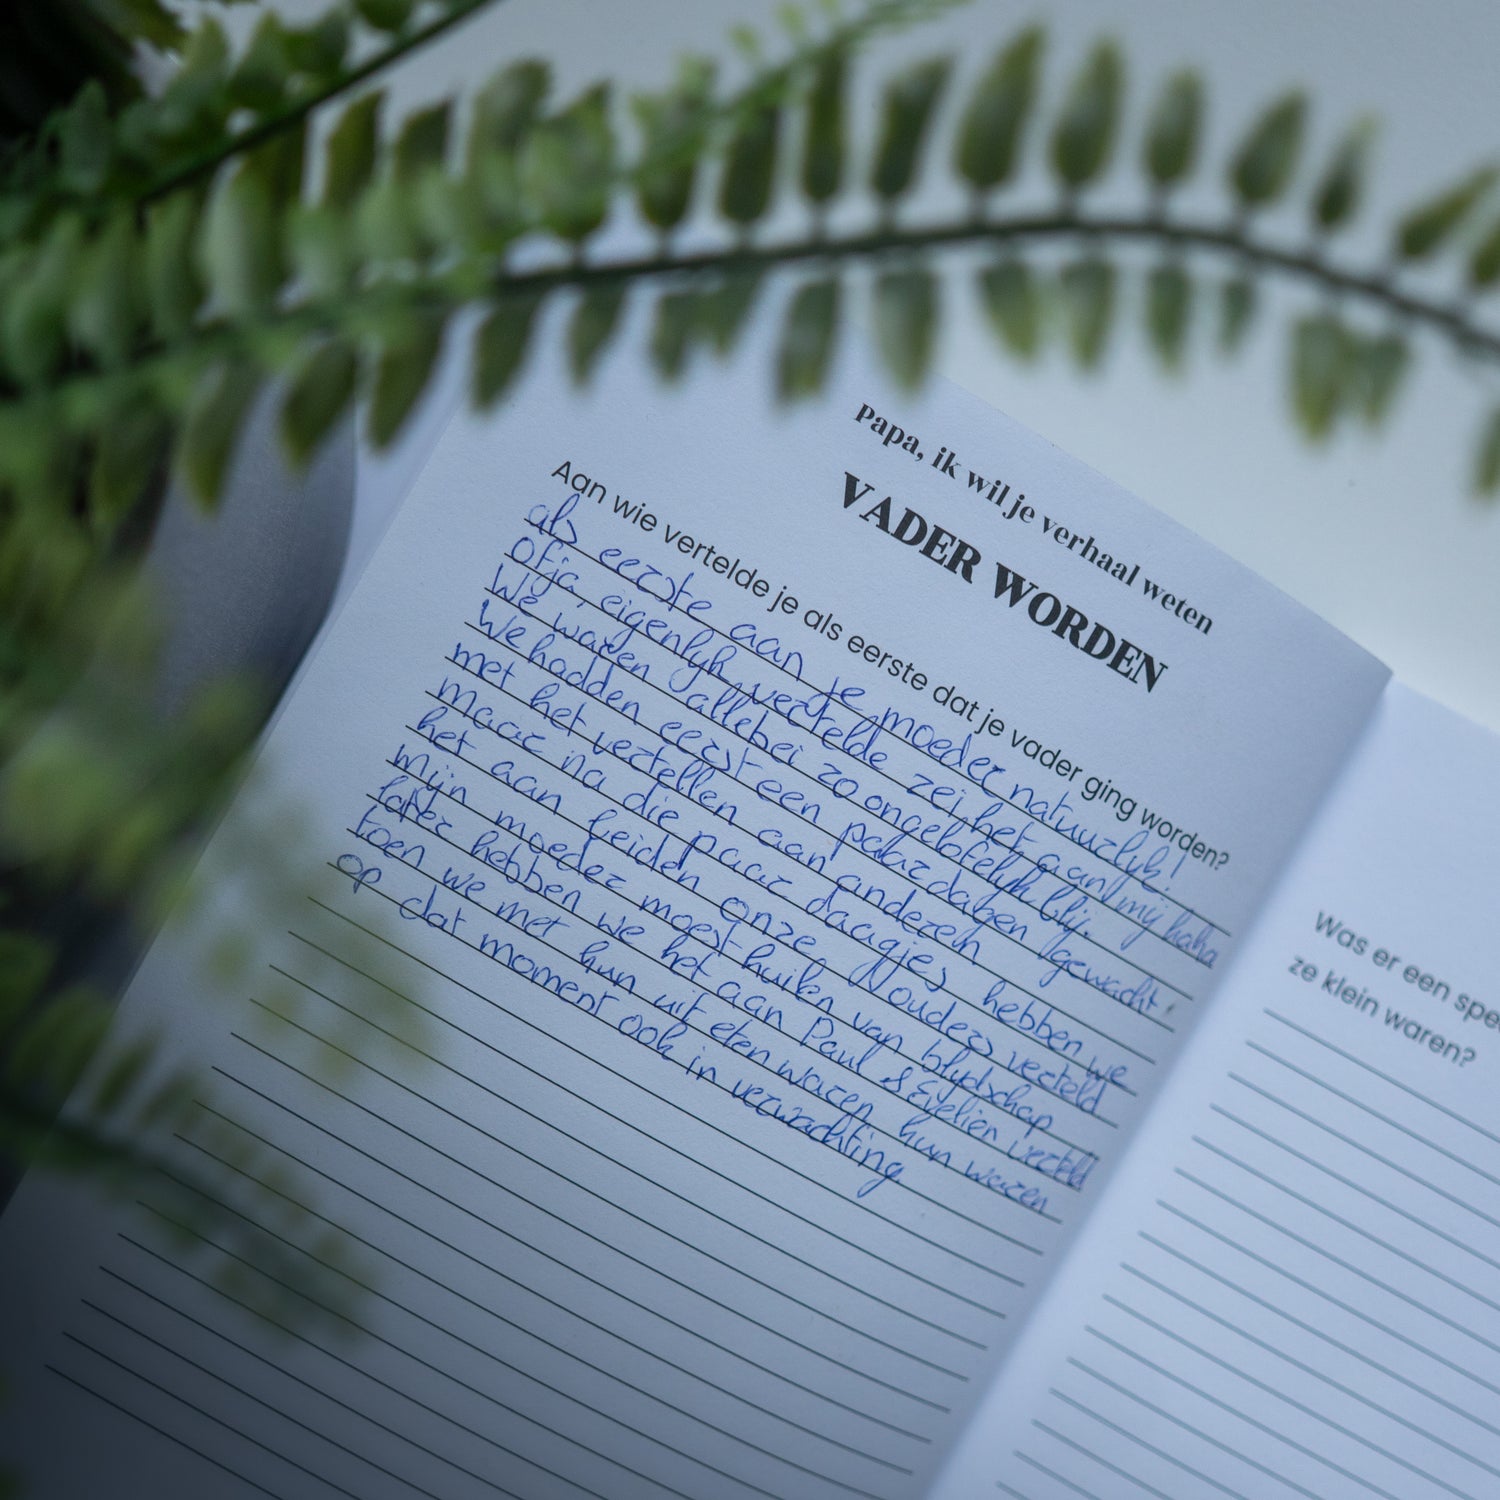 Papa, ik wil je verhaal weten
VADER WORDEN
Aan wie vertelde je als eerste dat je vader ging worden?
als eerste aan je moeder natuurlijk!
Ofja, eigenlijk vertelde zei het aan mij haha
We waren allebei zo ongelofelijk blij.
We hadden eerst een paar dagen gewacht
met het vertellen aan anderen
maar na die paar daagjes hebben we
het aan beiden onze ouders verteld
Mijn moeder moest huilen van blijdschap
later hebben we het aan Paul & Evelien verteld
toen we met hun uit eten waren hun waren
op dat moment ook in verwachting.
Was er een spe
ze klein waren?